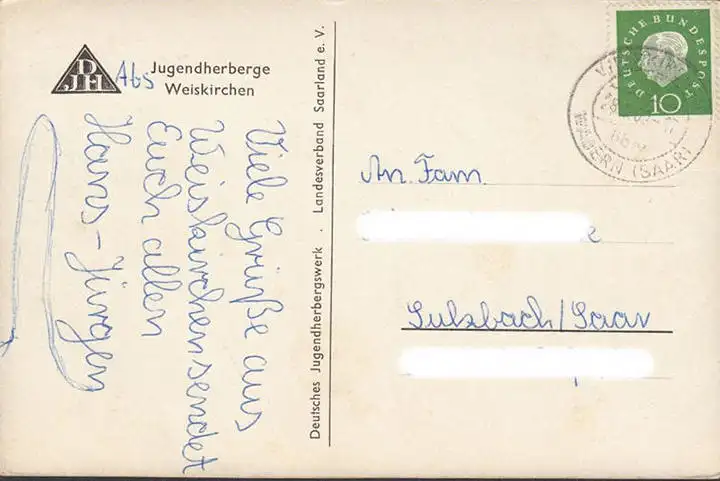 DJH
Abs Jugendherberge
Weiskirchen
Viele Grüße aus
Weiskirchen sendet
Euch allen
Hans-Jürgen
Deutsches Jugendherbergswerk · Landesverband Saarland e. V.
DEUTSCHE BUNDESPOST
10
WADERN (SAAR)
An Fam.
e
Sulzbach/Saar